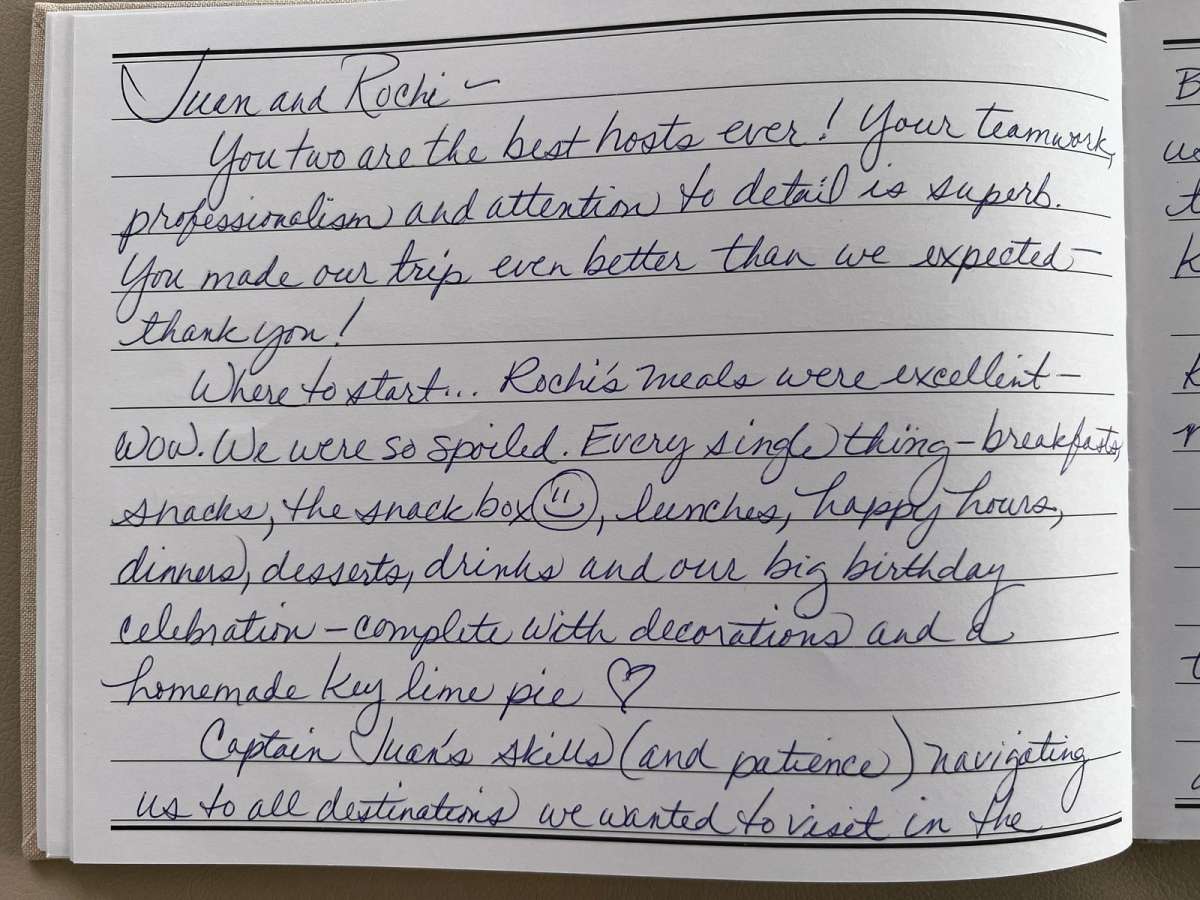 Juan and Rochi –
You two are the best hosts ever! Your teamwork,
professionalism and attention to detail is superb.
You made our trip even better than we expected –
thank you!
Where to start... Rochi's meals were excellent –
Wow. We were so spoiled. Every single thing – breakfasts,
snacks, the snack box ☺, lunches, happy hours,
dinners, desserts, drinks and our big birthday
celebration – complete with decorations and a
homemade key lime pie ♡
Captain Juan's skills (and patience) navigating
us to all destinations we wanted to visit in the